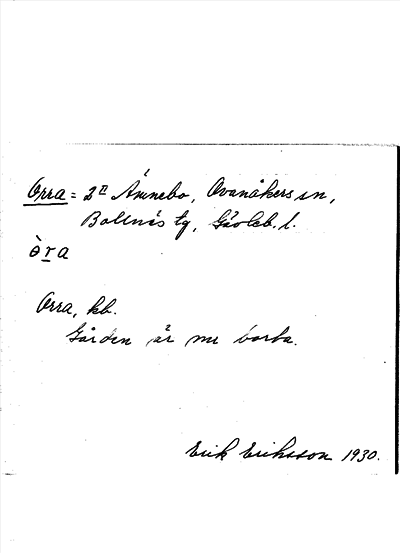 Orra = 2ᴵᴵ Ämnebo, Ovanåkers sn,
Bollnäs tg, Gävleb. l.
ò r a
Orra, kb.
Gården är nu borta.
Erik Eriksson 1930.